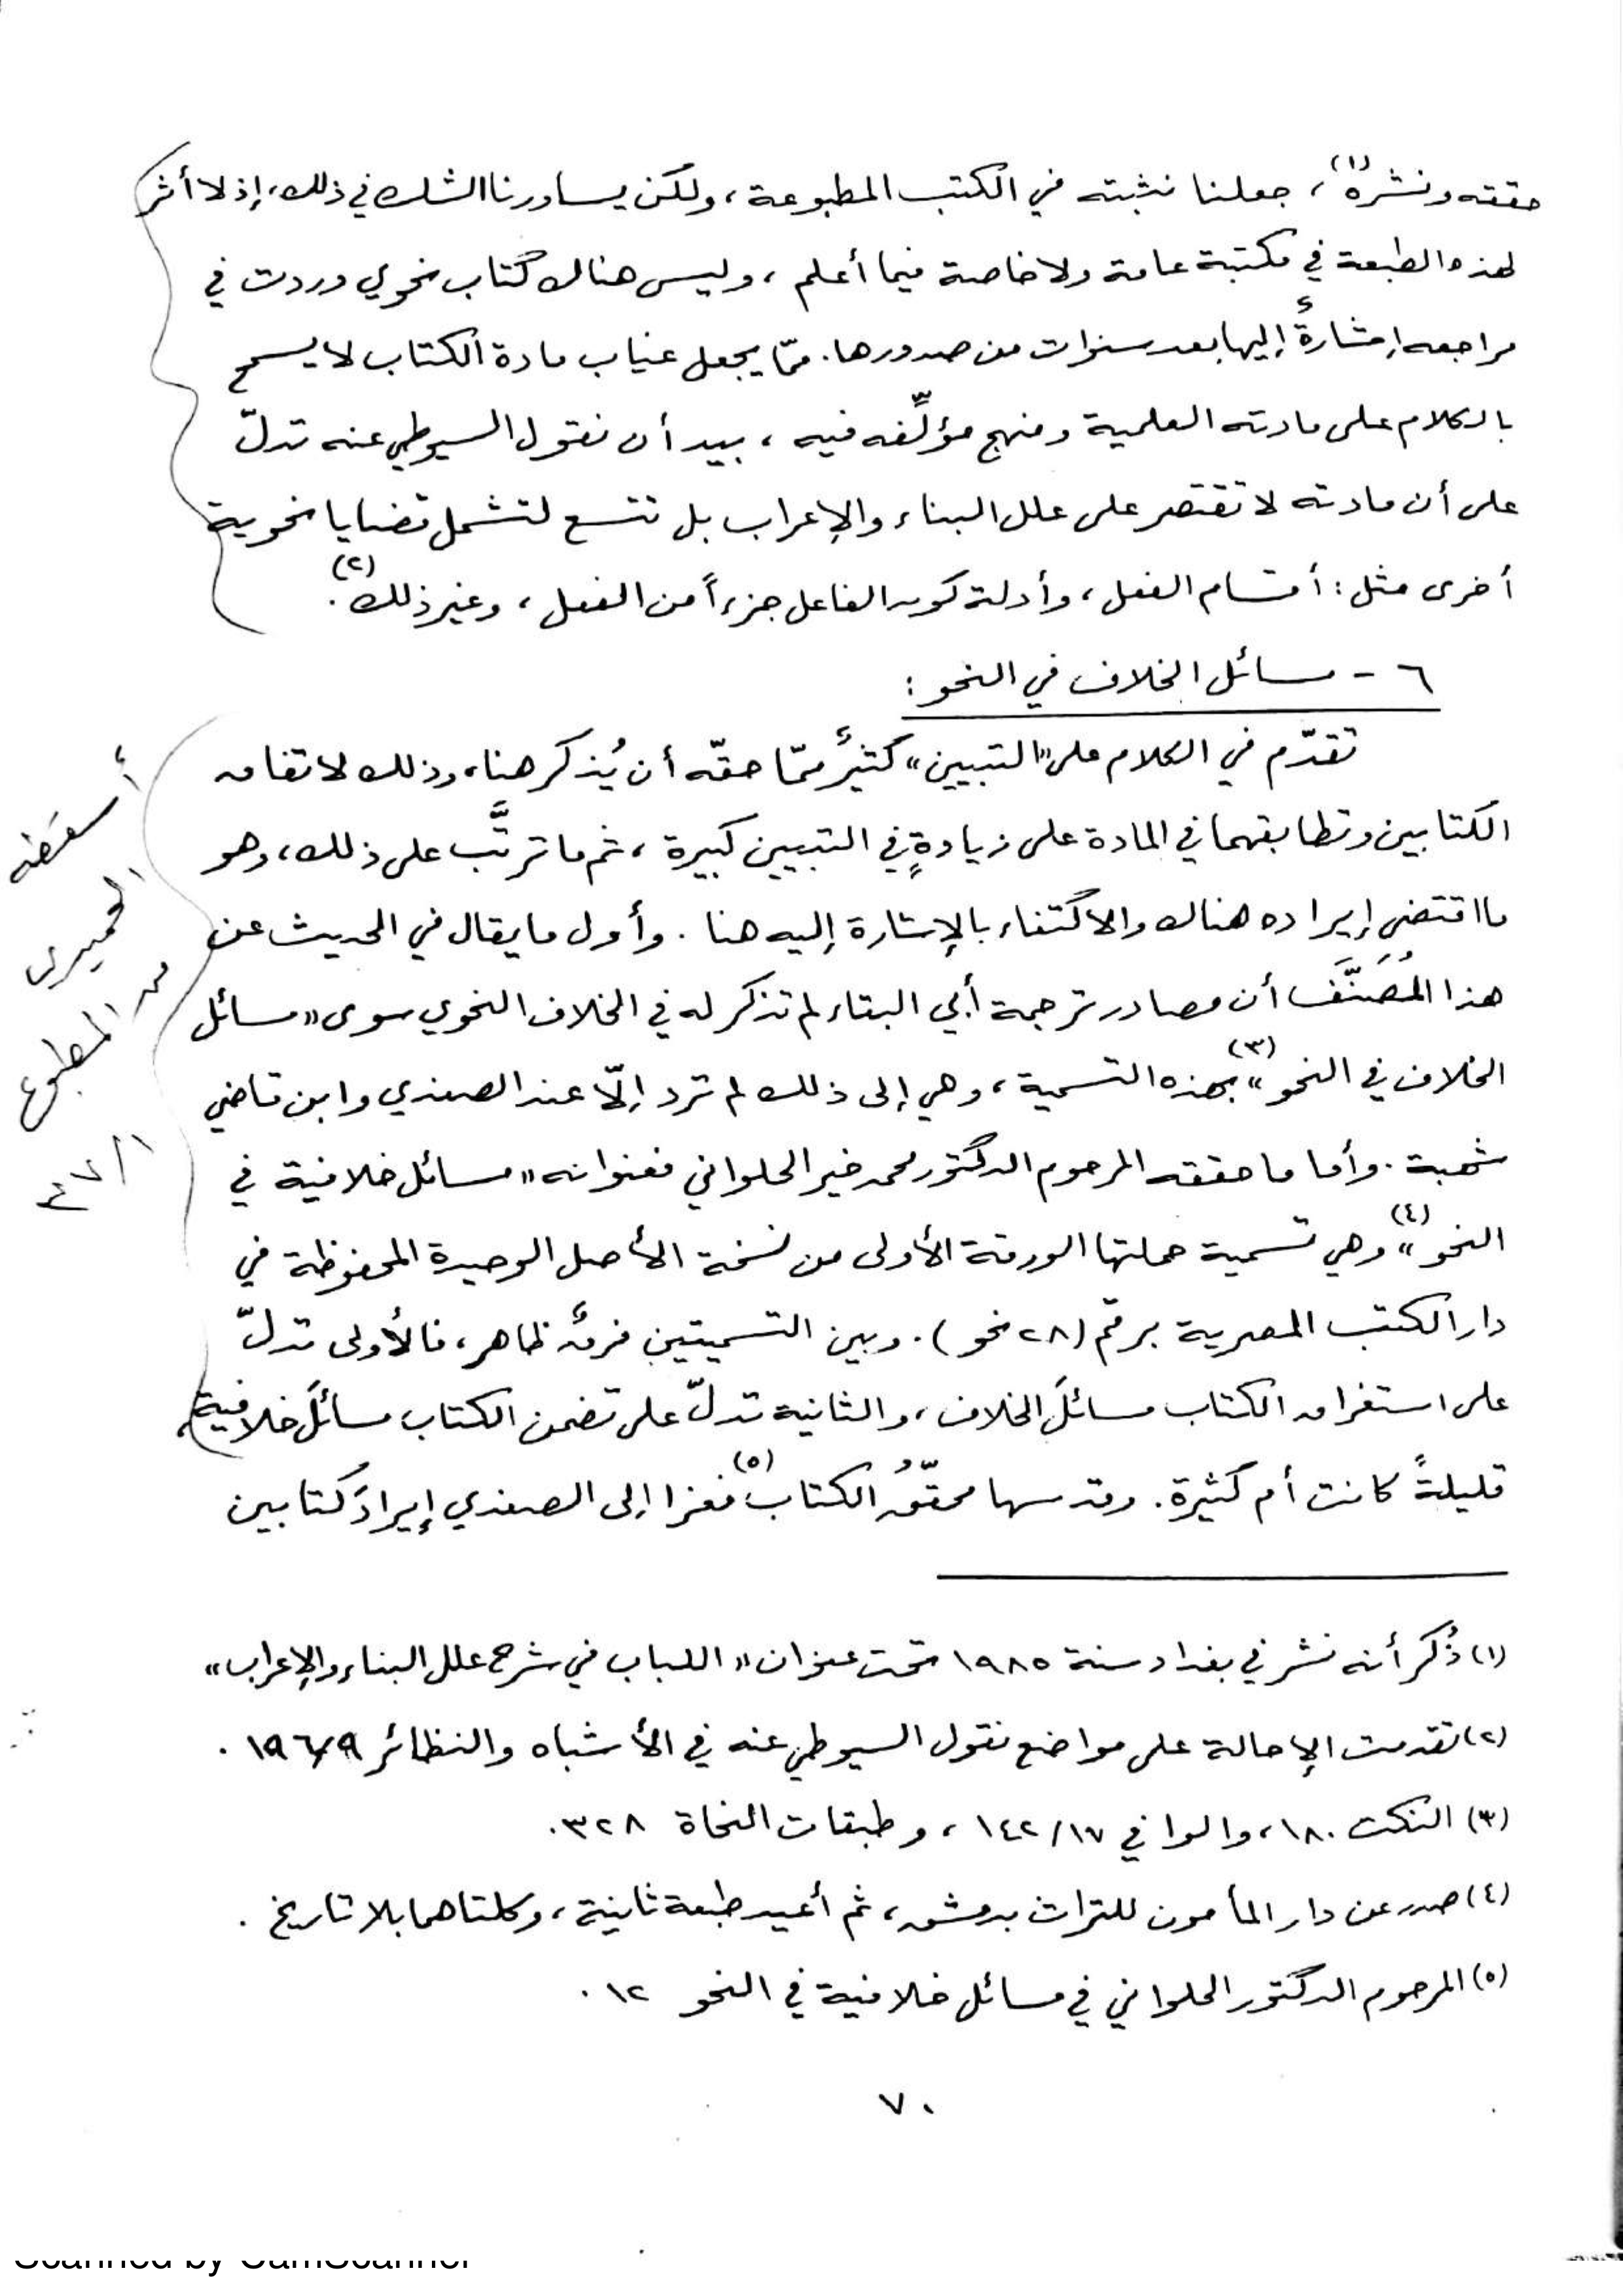 حققه ونشره(١)، جعلنا نثبته في الكتب المطبوعة، ولكن يساورنا الشك في ذلك، إذ لا أثر
لهذه الطبعة في مكتبة عامة ولا خاصة فيما أعلم، وليس هناك كتاب نحوي وردت في
مراجعه إشارةٌ إليها بعد سنوات من صدورها. ممّا يجعل غياب مادة الكتاب لا يسمح
بالكلام على مادته العلمية ومنهج مؤلِّفه فيه، بيد أن نقول السيوطي عنه تدلّ
على أن مادته لا تقتصر على علل البناء والإعراب بل تتسع لتشمل قضايا نحوية
أخرى مثل: أقسام الفعل، وأدلة كون الفاعل جزءاً من الفعل، وغير ذلك(٢).
٦ - مسائل الخلاف في النحو:
تقدّم في الكلام على «التبيين» كثيرٌ ممّا حقّه أن يُذكر هنا، وذلك لاتفاق
الكتابين وتطابقهما في المادة على زيادةٍ في التبيين كبيرة، ثم ما ترتَّب على ذلك، وهو
ما اقتضى إيراده هناك والاكتفاء بالإشارة إليه هنا. وأول ما يقال في الحديث عن
هذا المُصَنَّف أن مصادر ترجمة أبي البقاء لم تذكر له في الخلاف النحوي سوى «مسائل
الخلاف في النحو»(٣) بهذه التسمية، وهي إلى ذلك لم ترد إلّا عند الصفدي وابن قاضي
شهبة. وأما ما حققه المرحوم الدكتور محمد خير الحلواني فعنوانه «مسائل خلافية في
النحو»(٤) وهي تسمية حملتها الورقة الأولى من نسخة الأصل الوحيدة المحفوظة في
دار الكتب المصرية برقم (٢٨ نحو). وبين التسميتين فرقٌ ظاهر، فالأولى تدلّ
على استغراق الكتاب مسائلَ الخلاف، والثانية تدلّ على تضمن الكتاب مسائلَ خلافية،
قليلةً كانت أم كثيرة. وقد سها محقّقُ الكتاب(٥) فعزا إلى الصفدي إيرادَ كتابين
أسقطه
الحميري
من المطبوع
(١) ذُكر أنه نشر في بغداد سنة ١٩٨٥ تحت عنوان «اللباب في شرح علل البناء والإعراب»
(٢) تقدمت الإحالة على مواضع نقول السيوطي عنه في الأشباه والنظائر ١٩٦/٩.
(٣) النكت ١٨٠، والوافي ١٤٢/١٧، وطبقات النحاة ٣٢٨.
(٤) صدر عن دار المأمون للتراث بدمشق، ثم أعيد طبعة ثانية، وكلتاهما بلا تاريخ.
(٥) المرحوم الدكتور الحلواني في مسائل خلافية في النحو ١٢.
٧٠
Scanned by CamScanner